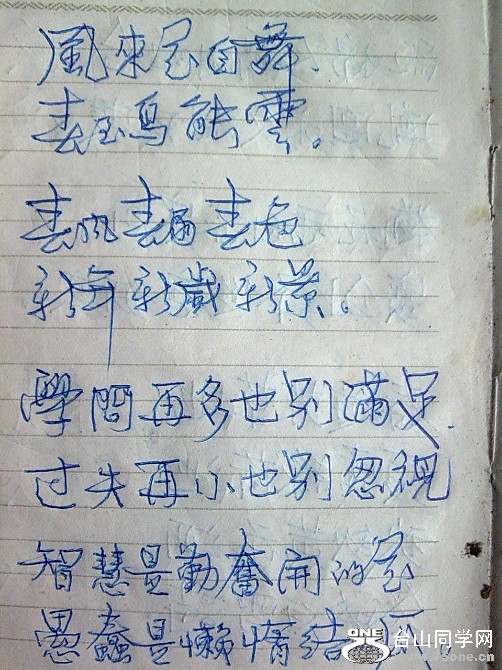 風來花自舞.
春至鳥能雲。
春风春雨春色
新年新歲新景。
學問再多也别滿足.
过失再小也别忽视
智慧是勤奮開的花
愚蠢是懒惰结
ONE
台山同学网
one.cn